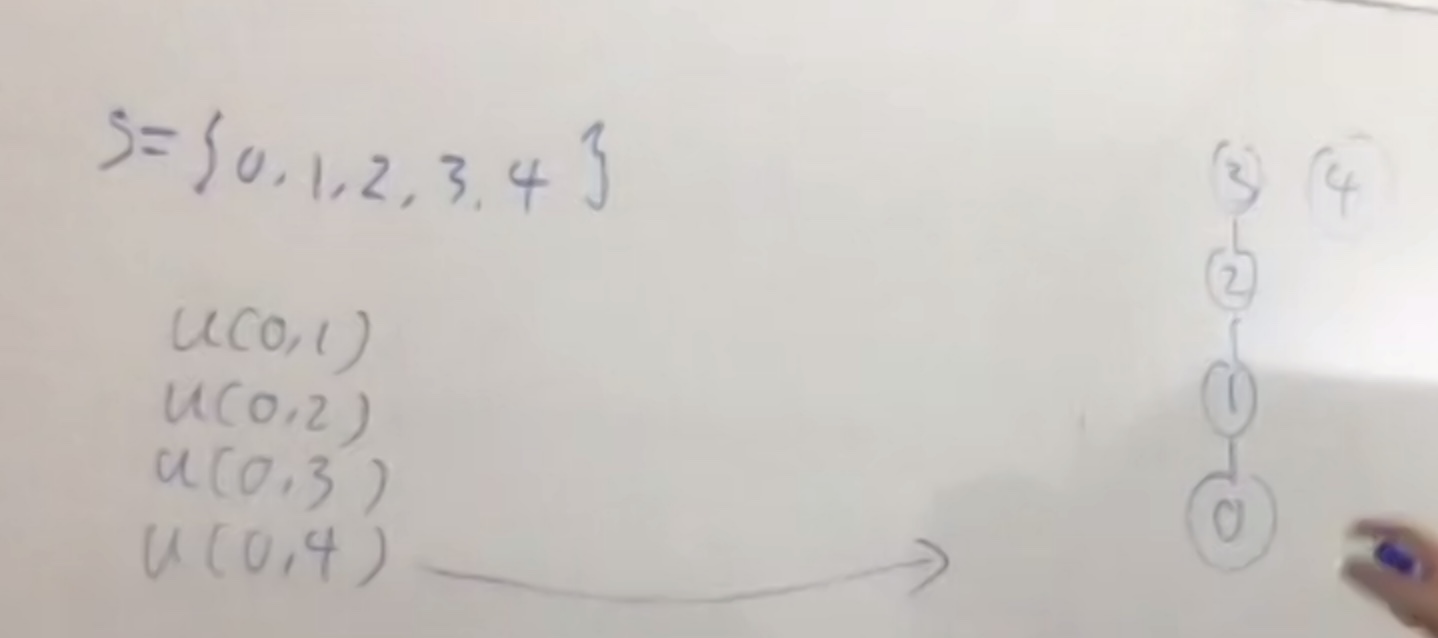 S={0,1,2,3,4}
u(0,1)
u(0,2)
u(0,3)
u(0,4)
3 4
2
1
0